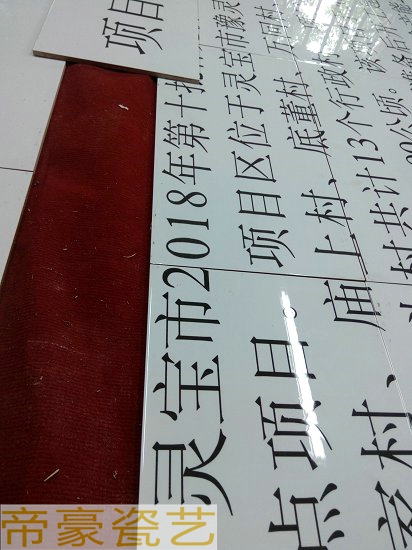 项目
灵宝市2018年第十批
点项目。项目区位于灵宝市豫灵
村、庙上村、底董村、万回村
村共计13个行政村
公顷。
帝豪瓷艺